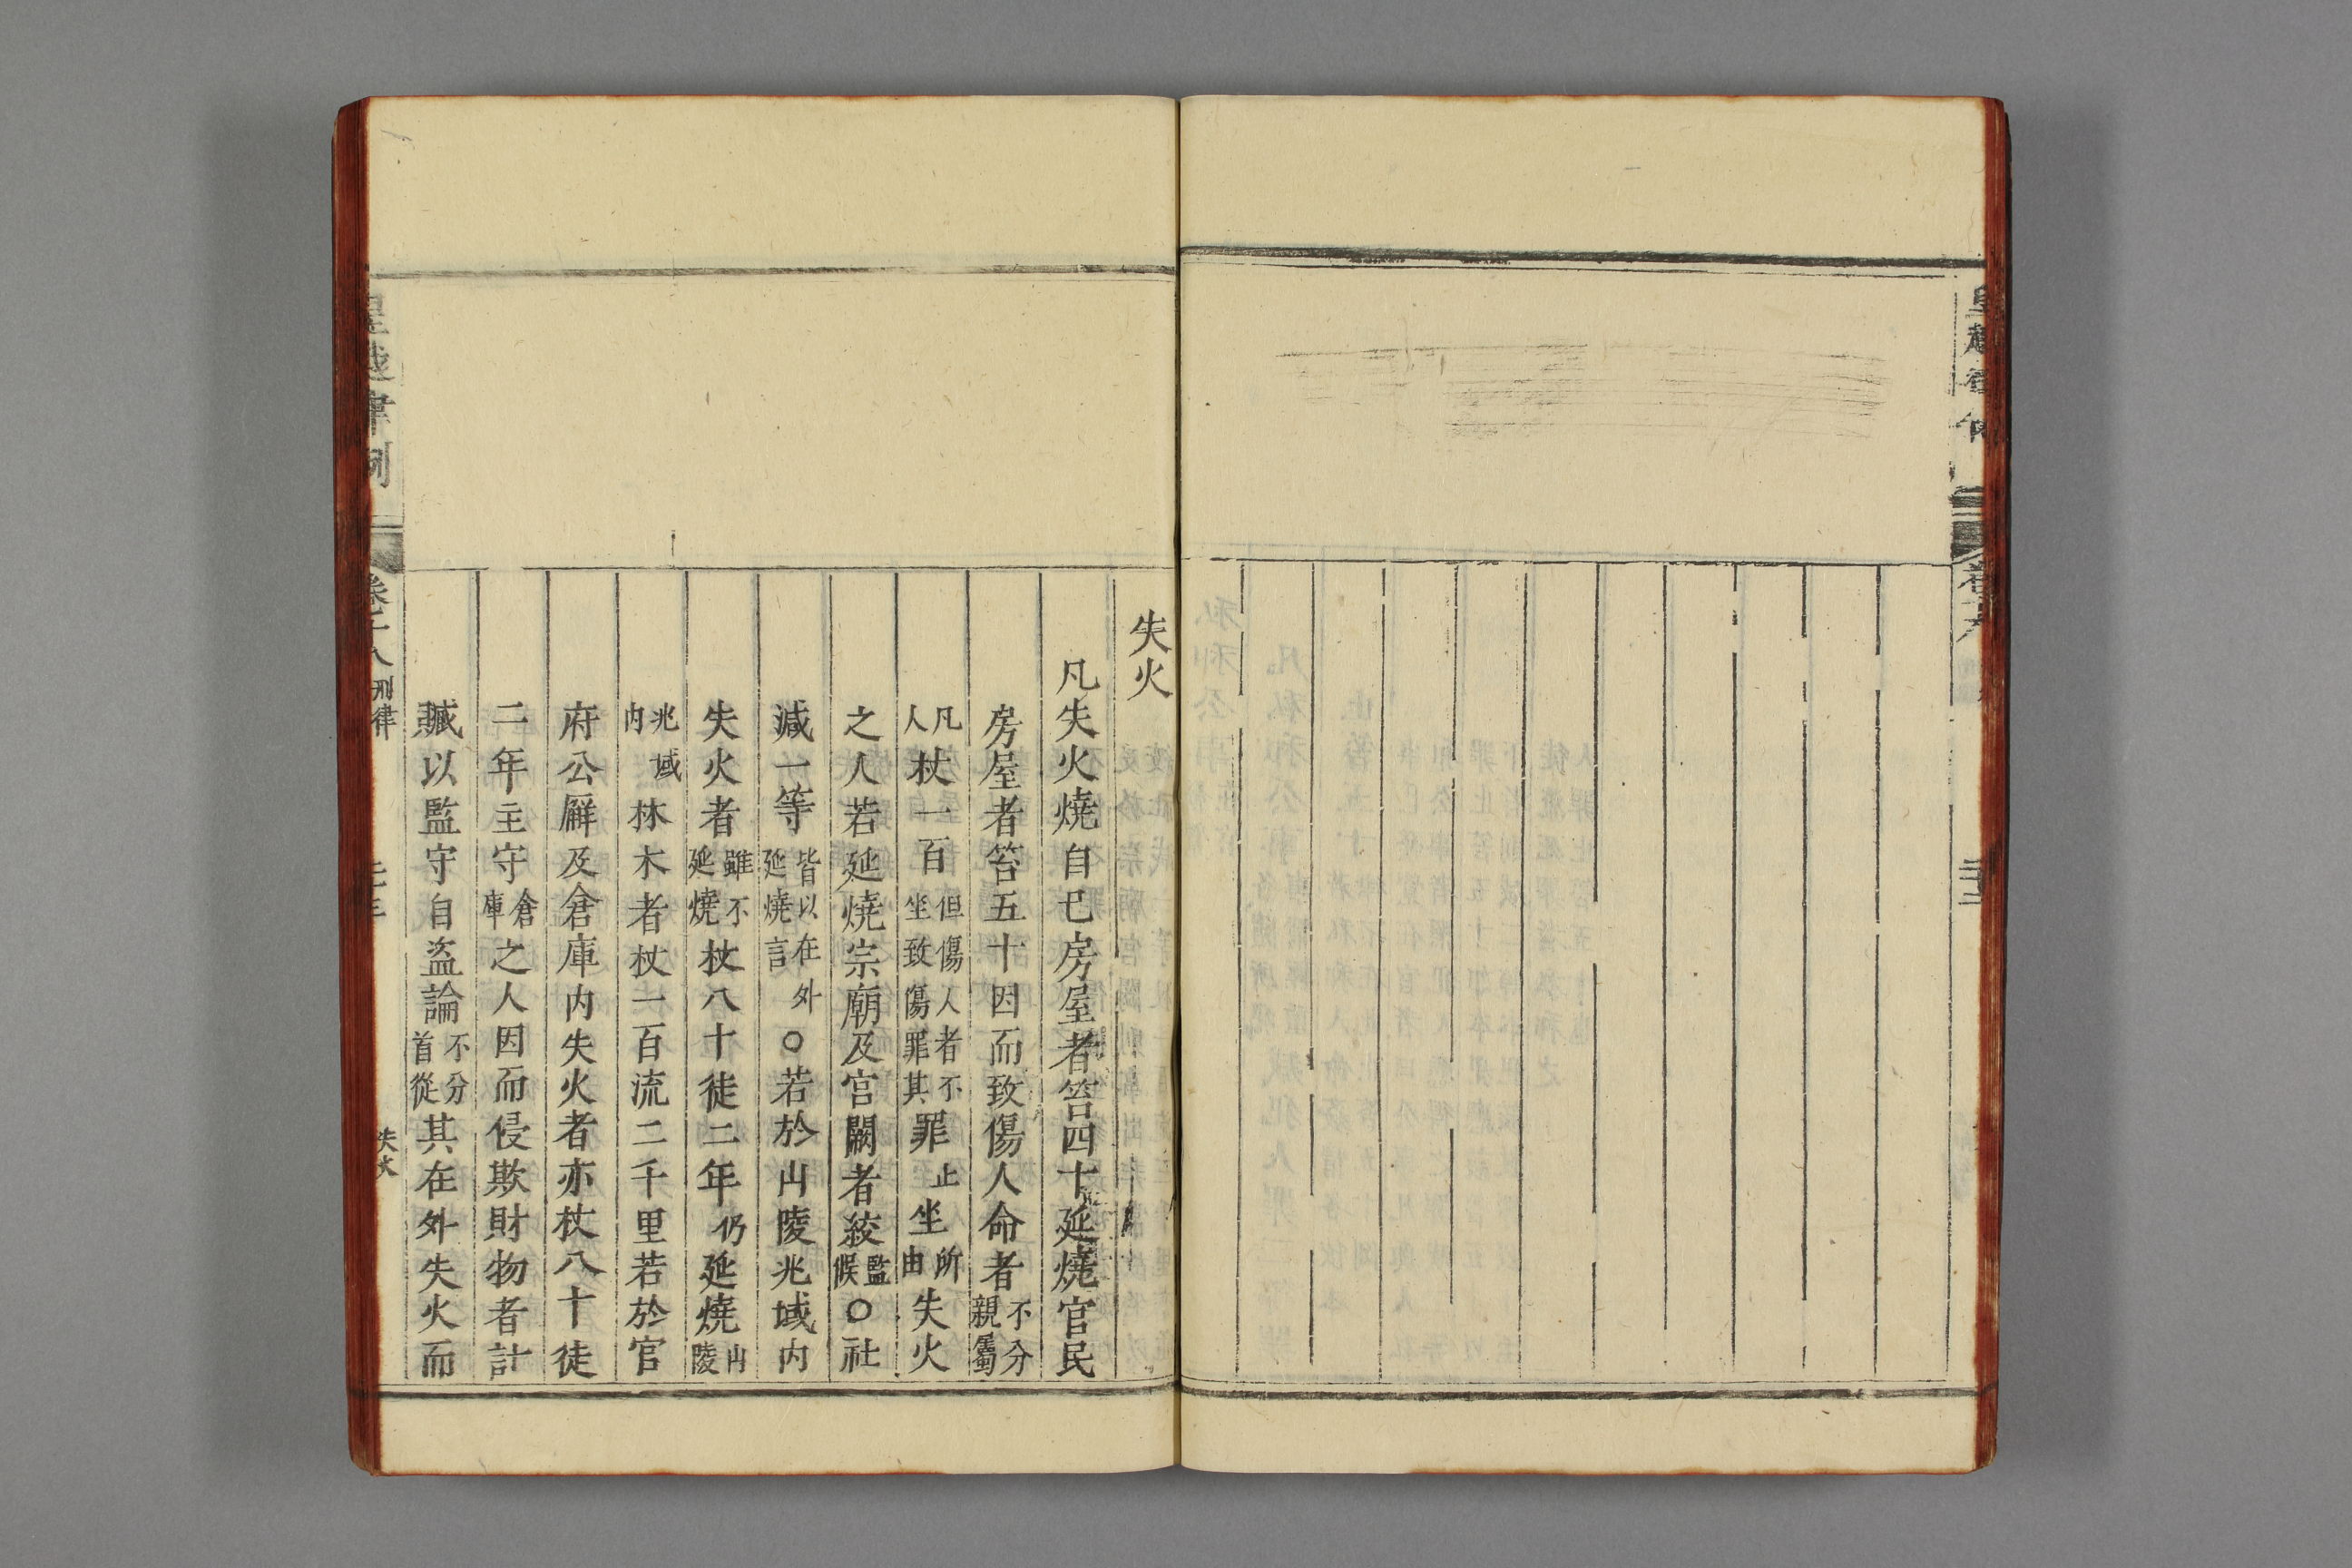 失火
凡失火燒自己房屋者笞四十延燒官民
房屋者笞五十因而致傷人命者不分親屬
凡人杖一百但傷人者不坐致傷罪其罪止坐所由失火
之人若延燒宗廟及宮闕者絞監候○社
減一等皆以在外延燒言○若於山陵兆域内
失火者雖不延燒杖八十徒二年仍延燒山陵
兆域内林木者杖一百流二千里若於官
府公廨及倉庫内失火者亦杖八十徒
二年主守倉庫之人因而侵欺財物者計
贓以監守自盜論不分首從其在外失火而
皇越律例
卷十八
刑律
失火